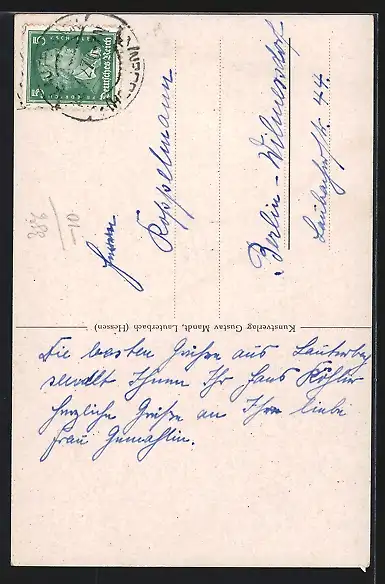 Deutsches Reich
5
5
Herrn
Koppelmann
Berlin-Wilmersdorf
Laubacherstr. 44.
352
-10
Kunstverlag Gustav Mandt, Lauterbach (Hessen)
Die besten Grüße aus Lauterbach
sendet Ihnen Ihr Hans Köhler
Herzliche Grüße an Ihre liebe
Frau Gemahlin.